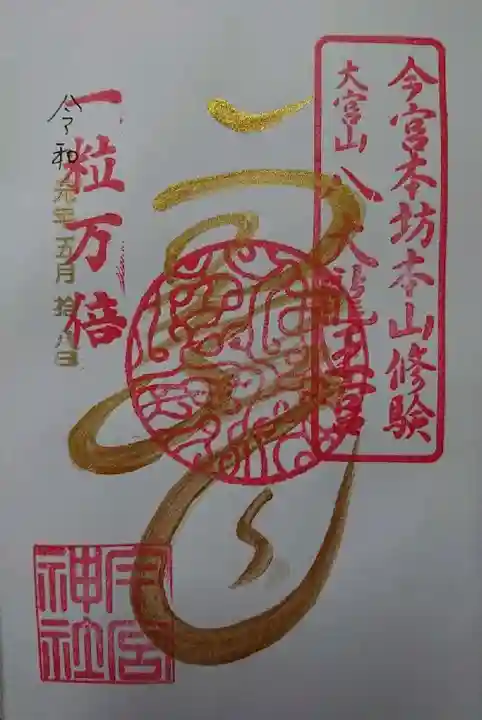 今宮本坊本山修験
大宮山 八大龍王宮
一粒万倍
令和元年五月拾八日
今宮神社